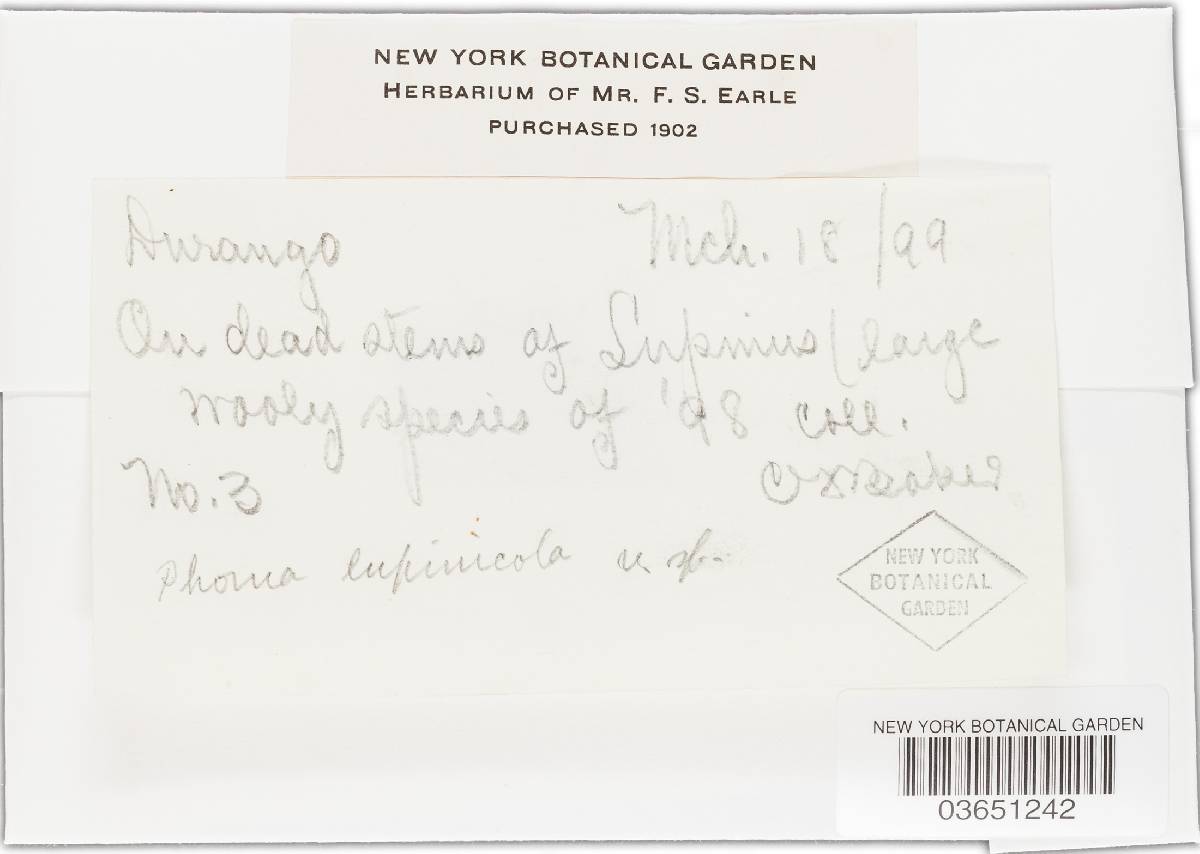 NEW YORK BOTANICAL GARDEN
HERBARIUM OF MR. F. S. EARLE
PURCHASED 1902
Durango Mch. 18/99
On dead stems of Lupinus (large
wooly species of '98 coll.
No. 3 C F Baker
Phoma lupinicola n sp.
NEW YORK
BOTANICAL
GARDEN
NEW YORK BOTANICAL GARDEN
03651242